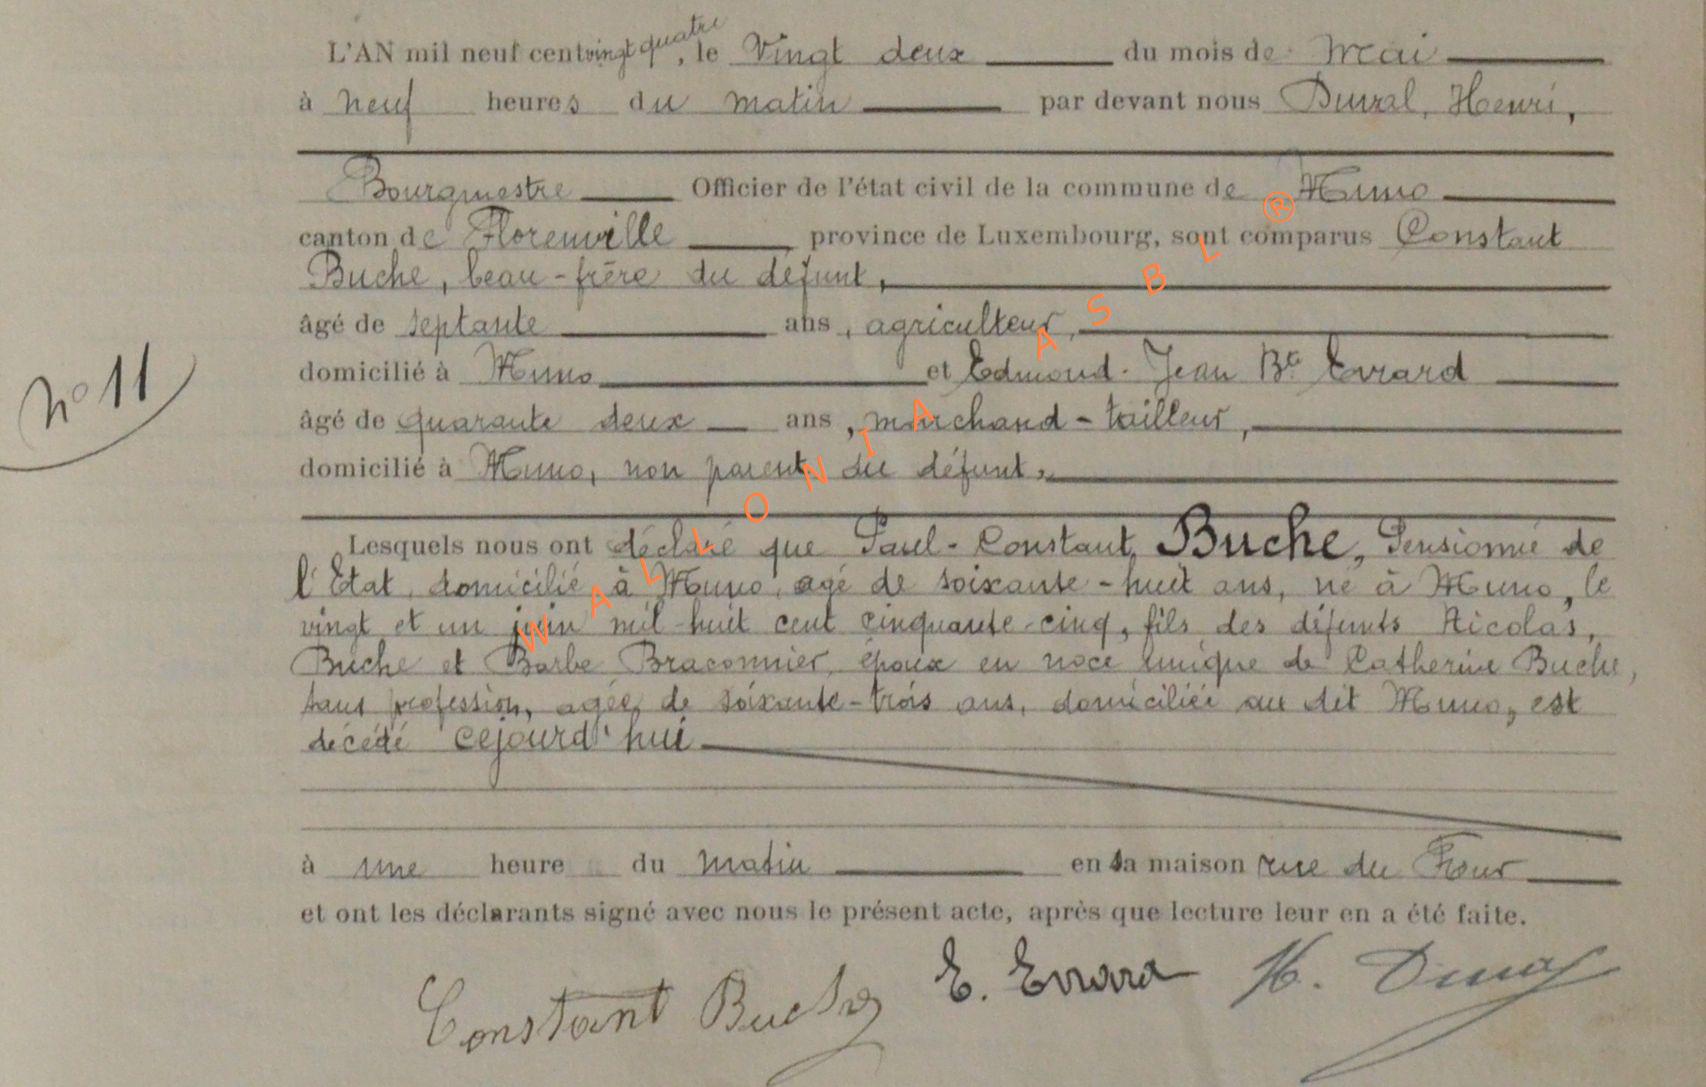 L'AN mil neuf cent vingt quatre, le Vingt deux du mois de Mai
à neuf heures du matin par devant nous Duval, Henri,
Bourgmestre Officier de l'état civil de la commune de Muno
canton de Florenville province de Luxembourg, sont comparus Constant
Buche, beau-frère du défunt,
âgé de septante ans, agriculteur,
domicilié à Muno et Edmond-Jean Bte Evrard
nº 11
âgé de quarante deux ans, marchand-tailleur,
domicilié à Muno, non parent du défunt,
Lesquels nous ont déclaré que Paul-Constant, Buche, Pensionné de
l'Etat, domicilié à Muno, agé de soixante-huit ans, né à Muno, le
vingt et un juin mil-huit cent cinquante-cinq, fils des défunts Nicolas,
Buche et Barbe Braconnier, époux en noce unique de Catherine Buche,
sans profession, agée de soixante-trois ans, domiciliée au dit Muno, est
décédé cejourd'hui
à une heure du matin en sa maison rue du Four
et ont les déclarants signé avec nous le présent acte, après que lecture leur en a été faite.
Constant Buche E. Evrard H. Duval
WALLONIA ASBL ®